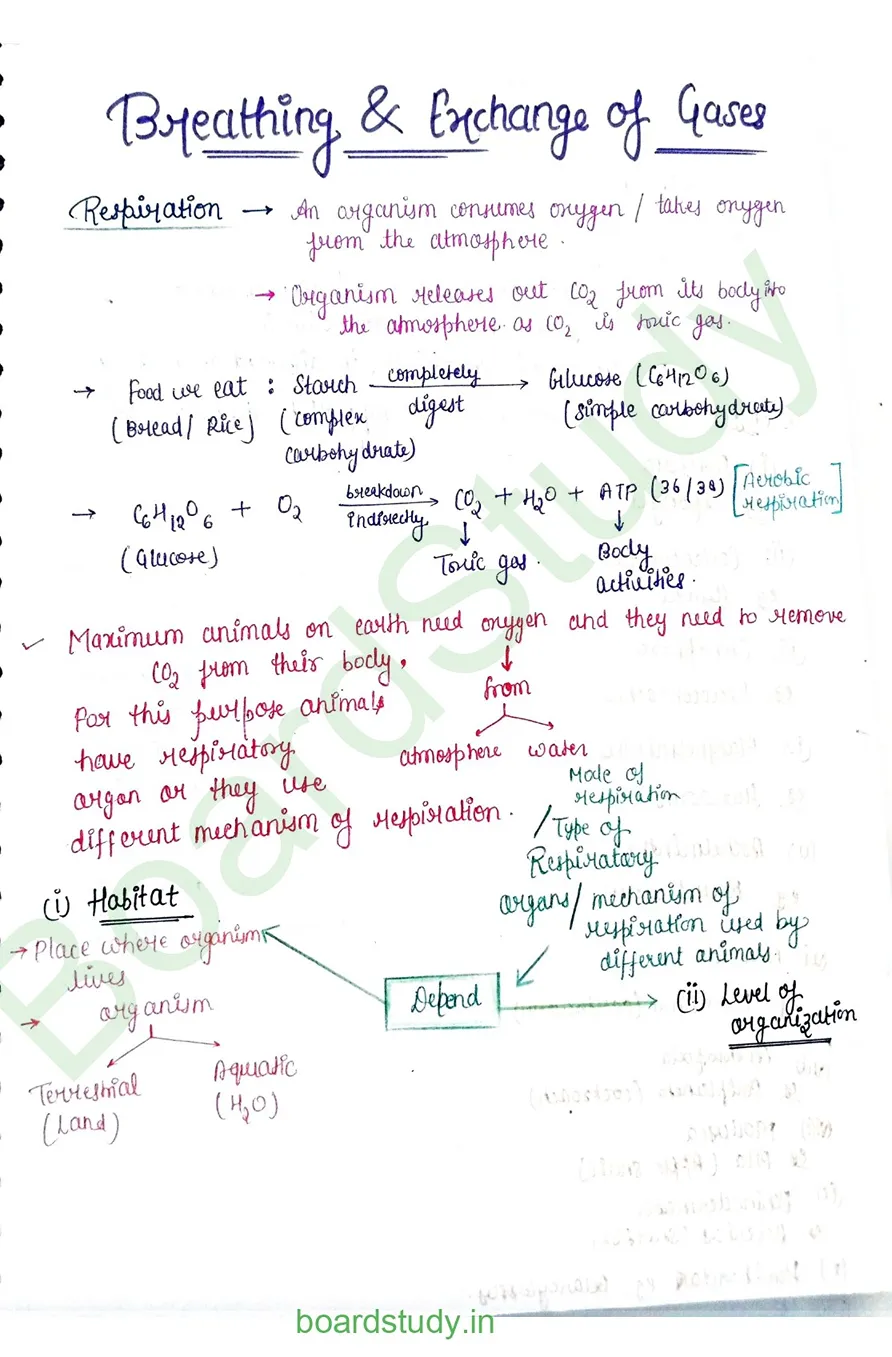 Breathing & Exchange of Gases
Respiration → An organism consumes oxygen / takes oxygen
from the atmosphere.
→ Organism releases out CO2 from its body into
the atmosphere as CO2 is toxic gas.
→ Food we eat : Starch completely digest → Glucose (C6H12O6)
(Bread/ Rice) (complex (simple carbohydrate)
carbohydrate)
→ C6H12O6 + O2 breakdown indirectly → CO2 + H2O + ATP (36/38) [Aerobic respiration]
(Glucose) ↓ Toxic gas. ↓ Body
activities.
✓ Maximum animals on earth need oxygen and they need to remove
CO2 from their body,
↓
from
atmosphere water
For this purpose animals
have respiratory
argon or they use
different mechanism of respiration.
Mode of
respiration
/Type of
Respiratory
organs/ mechanism of
respiration used by
different animals.
Depend
(i) Habitat
→ Place where organism
lives
→ organism
Terrestrial
(Land)
Aquatic
(H2O)
(ii) Level of
organization
BoardStudy
boardstudy.in